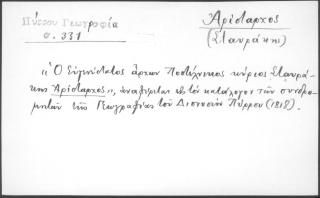 Πύρρου Γεωγραφία
σ. 331
Ἀρίσταρχος
(Σταυράκης)
"Ὁ Εὐγενέστατος ἄρχων Ποστέλνικος κύριος Σταυρά-
κης Ἀρίσταρχος", ἀναφέρεται εἰς τὸν κατάλογον τῶν συνδρο-
μητῶν τῆς Γεωγραφίας τοῦ Διονυσίου Πύρρου (1818).